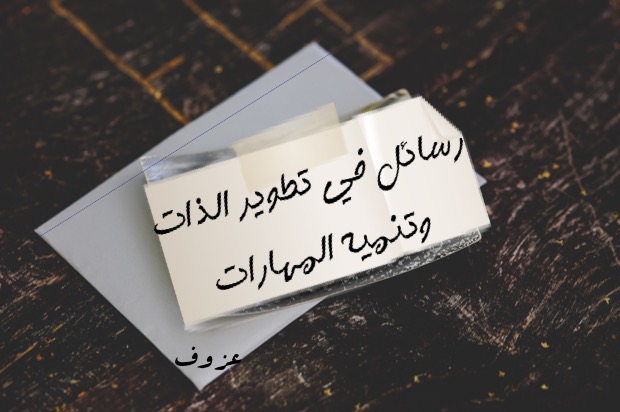 رسائل في تطوير الذات
وتنمية المهارات
عزوف